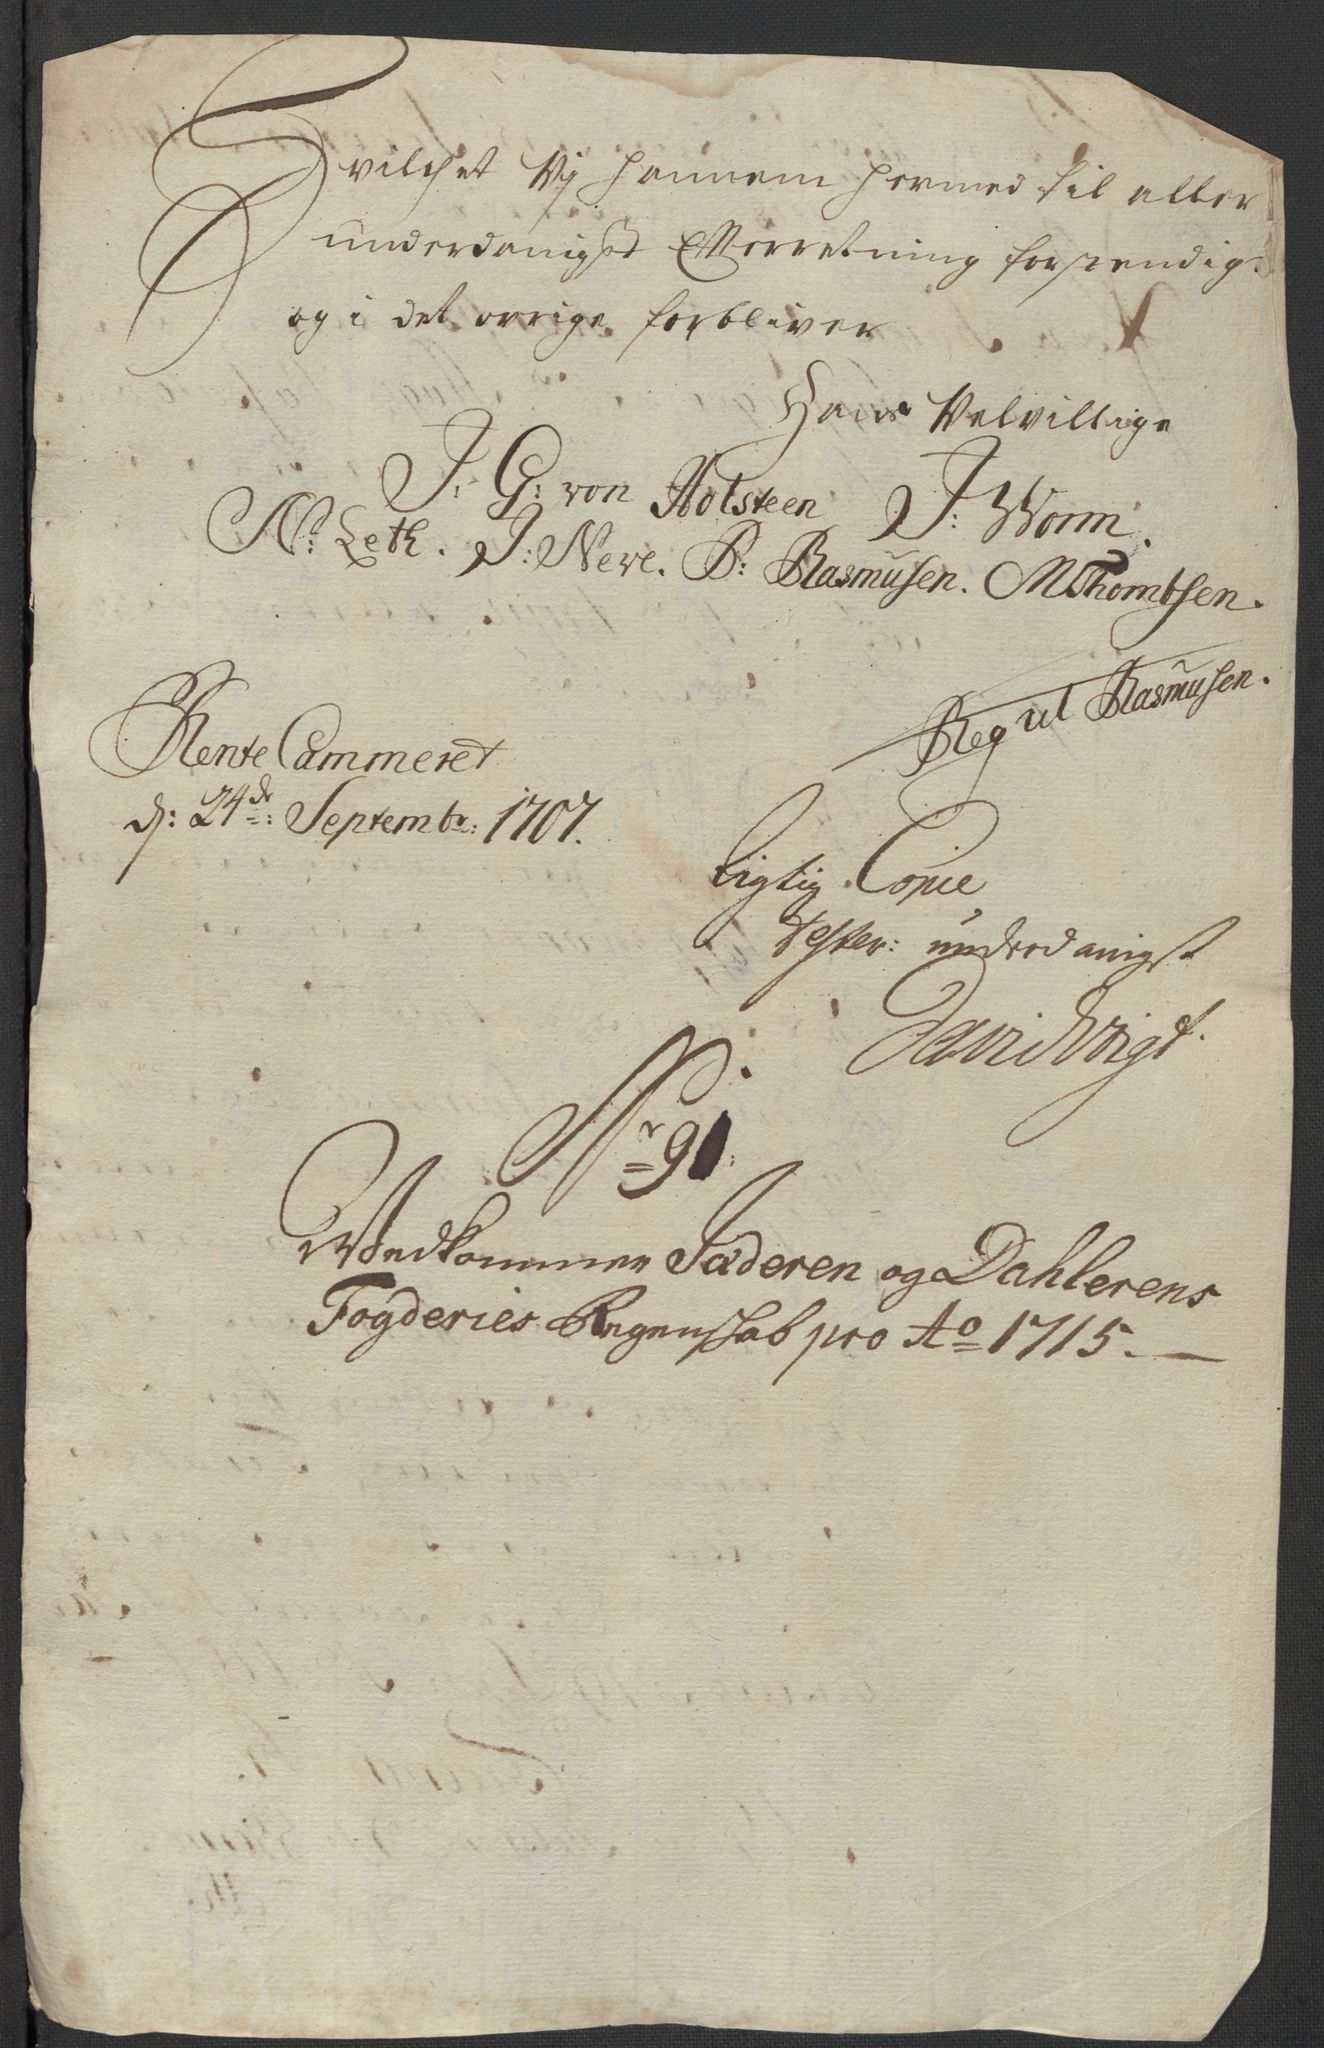 Hvilchet Vj hannem hermed til aller
underdanigst Efterretning forstendig:
og i det øvrige forbliver
Hans Velvillige
J: G: von Holsteen J: Worm.
N: Leth. J: Neve. P: Rasmusen. M Thombsen.
Reg ut Rasmusen.
Rente Cammeret
d: 24de: Septembr: 1707.
Rigtig Copie
Tester: underdanigst
David Voigt.
Nr 91.
Wedkommer Jæderen og Dahlerens
Fogderies Regenskab pro Ao 1715.